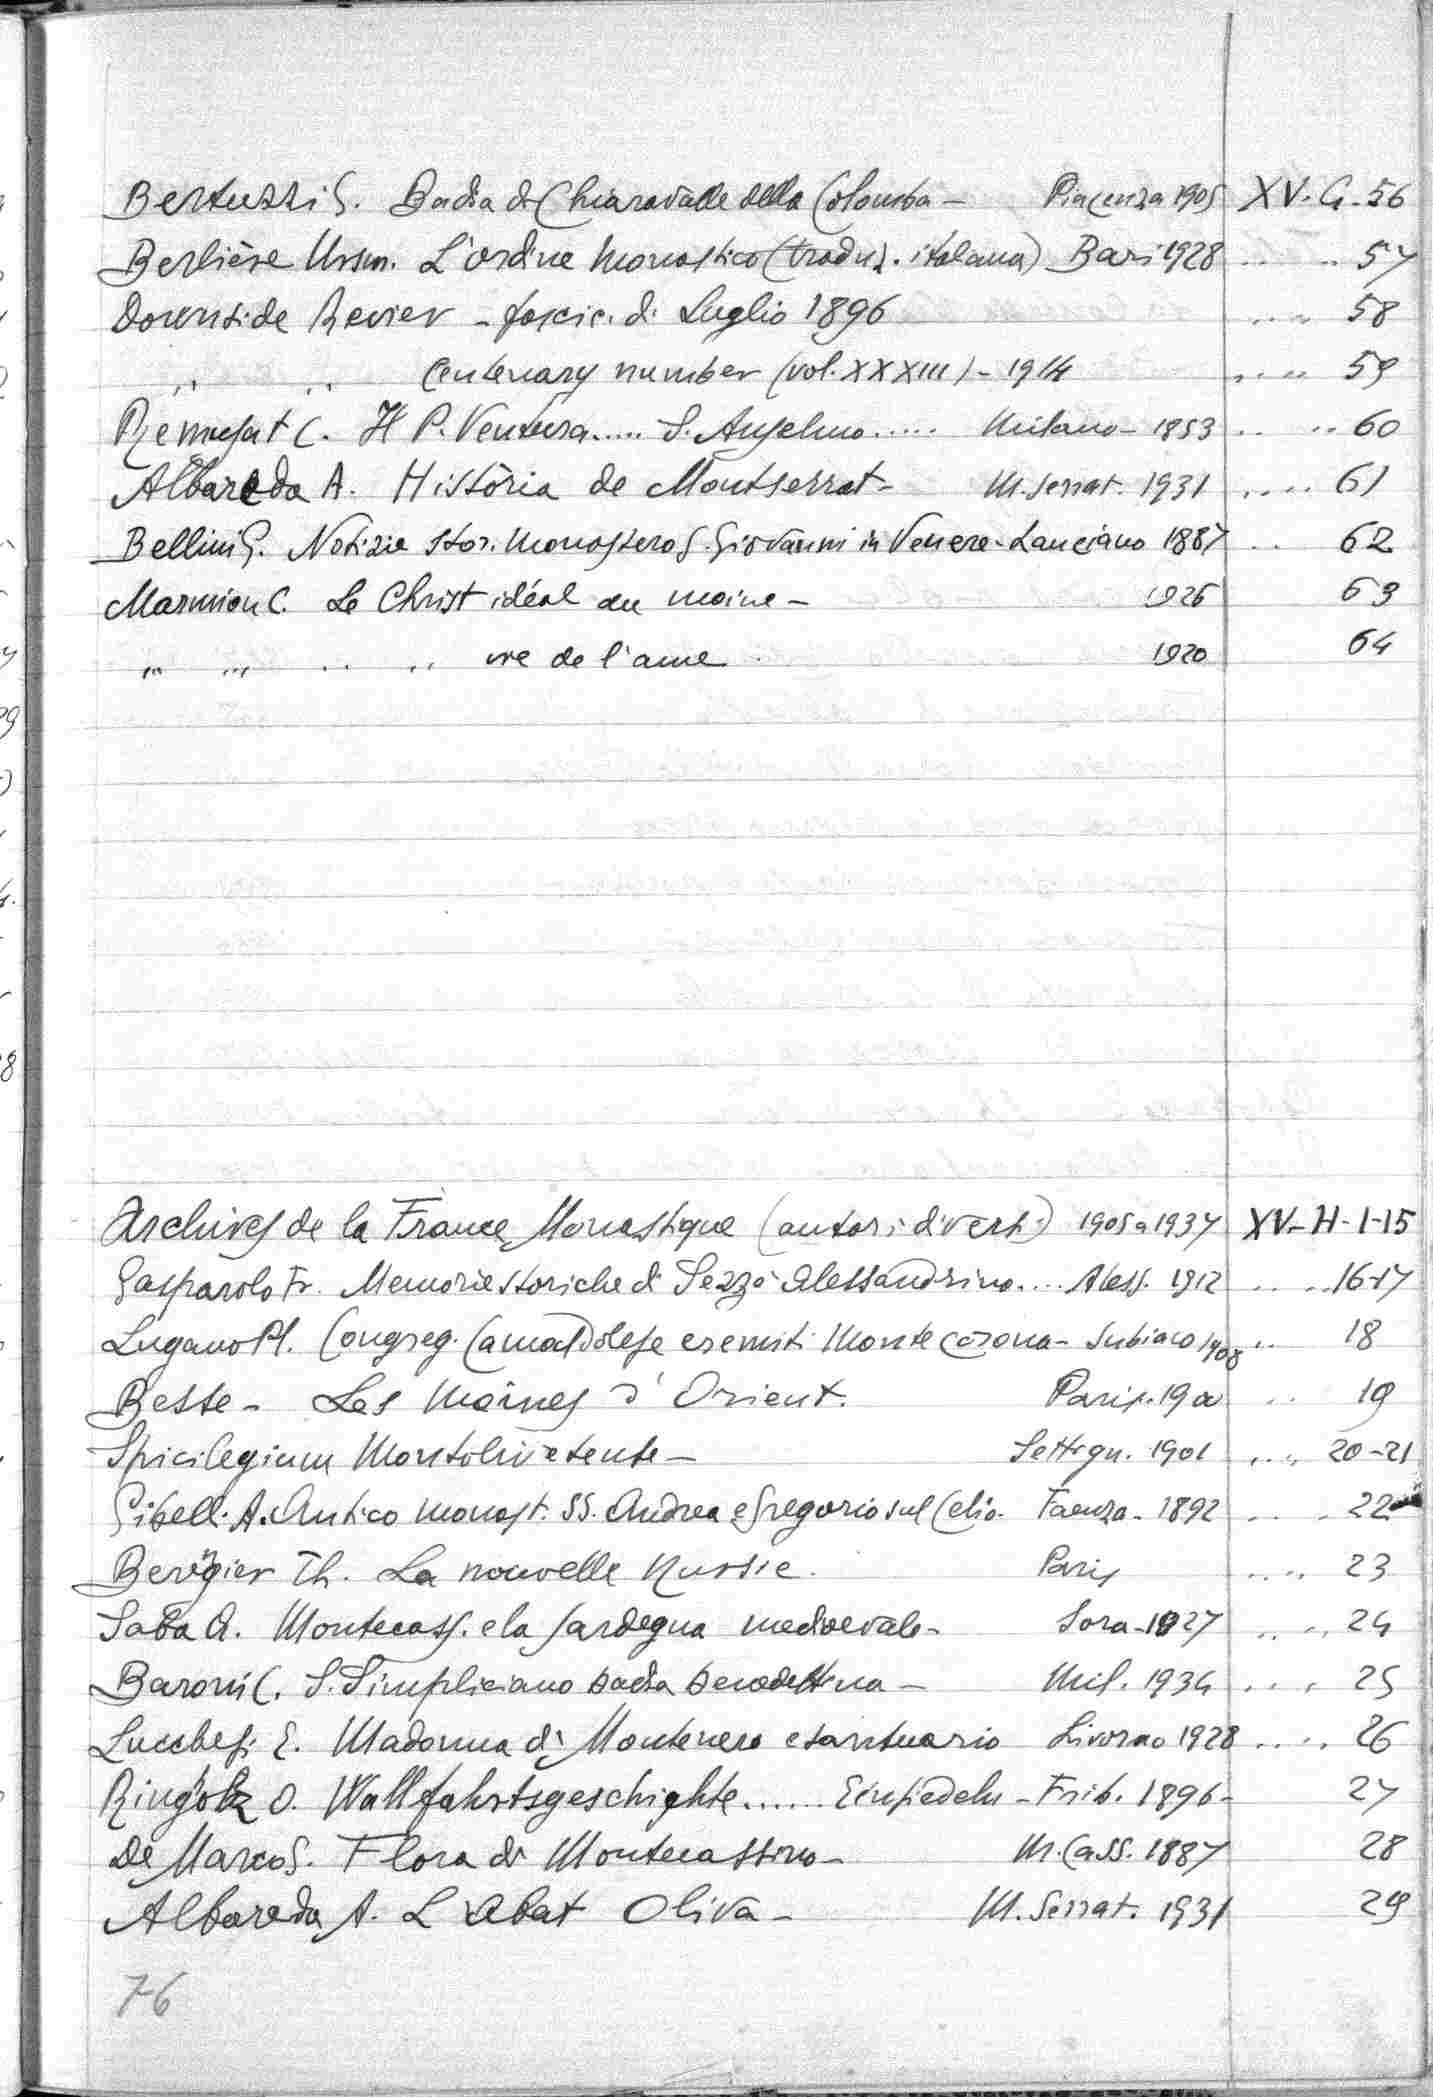 Bertuzzi G. Badia di Chiaravalle della Colomba - Piacenza 1905 XV. G. 56
Berlière Ursm. L'ordine monastico (traduz. italiana) Bari 1928 .. .. 57
Downside Revier - fascic. di Luglio 1896 .. .. 58
,, ,, Centenary number (vol. XXXIII) - 1914 .. .. 59
Remusat C. P. Ventura..... S. Anselmo..... Milano - 1853 .. .. 60
Albareda A. Història de Montserrat - M. serrat. 1931 .... 61
Bellini G. Notizie stor. monastero S. Giovanni in Venere - Lanciano 1887 .. 62
Marmion C. Le Christ idéal du moine - 1926 63
,, ,, .. ,, vie de l'ame 1920 64
Archives de la France Monastique (autori diversi) 1905 a 1937 XV - H - 1-15
Gasparolo Fr. Memorie storiche di Sezzè Alessandrino.... Aless. 1912 .. .. 16-17
Lugano Pl. Congreg. Camaldolese eremiti Monte Corona - Subiaco 1908 .. 18
Besse - Les Moines d'Orient. Paris. 19 .. 19
Spicilegium Montolivetense - Settign. 1901 .. .. 20-21
Gibelli A. Antico monast. SS. Andrea e Gregorio sul Celio. Faenza - 1892 .. .. 22
Bergier Th. La nouvelle Russie. Paris .. .. 23
Saba A. Montecass. e la Sardegna medioevale - Sora - 1927 .. .. 24
Baroni C. S. Simpliciano badia benedettina - Mil. 1934 .. .. 25
Lucchesi E. Madonna di Montenero e santuario Livorno 1928 .. .. 26
Ringolz O. Wallfahrtsgeschichte...... Einsiedeln - Frib. 1896 - 27
De Marco S. Flora di Montecassino - M. Cass. 1887 28
Albareda A. L'abat Oliva - M. Serrat. 1931 29
76